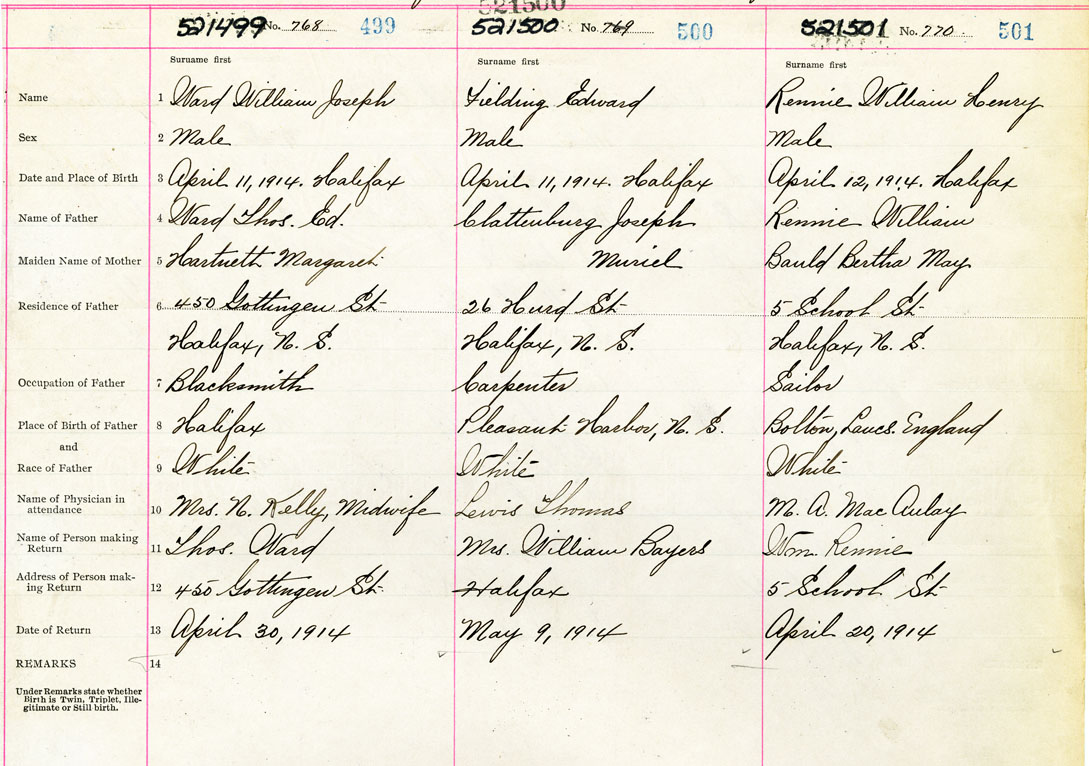 521500
521499 No. 768 499 521500 No. 769 500 521501 No. 770 501
Surname first Surname first Surname first
Name 1 Ward William Joseph Fielding Edward Rennie William Henry
Sex 2 Male Male Male
Date and Place of Birth 3 April 11, 1914. Halifax April 11, 1914. Halifax April 12, 1914. Halifax
Name of Father 4 Ward Thos. Ed. Clattenburg Joseph Rennie William
Maiden Name of Mother 5 Hartneth Margaret Muriel Bauld Bertha May
Residence of Father 6 450 Gottingen St 26 Hurd St 5 School St
Halifax, N. S. Halifax, N. S. Halifax, N. S.
Occupation of Father 7 Blacksmith Carpenter Sailor
Place of Birth of Father 8 Halifax Pleasant Harbor, N. S. Bolton, Lancs. England
and
Race of Father 9 White White White
Name of Physician in
attendance 10 Mrs. N. Kelly, Midwife Lewis Thomas M. A. MacAulay
Name of Person making
Return 11 Thos. Ward Mrs. William Bayers Wm. Rennie
Address of Person mak-
ing Return 12 450 Gottingen St Halifax 5 School St
Date of Return 13 April 30, 1914 May 9, 1914 April 20, 1914
REMARKS 14
Under Remarks state whether
Birth is Twin, Triplet, Ille-
gitimate or Still birth.